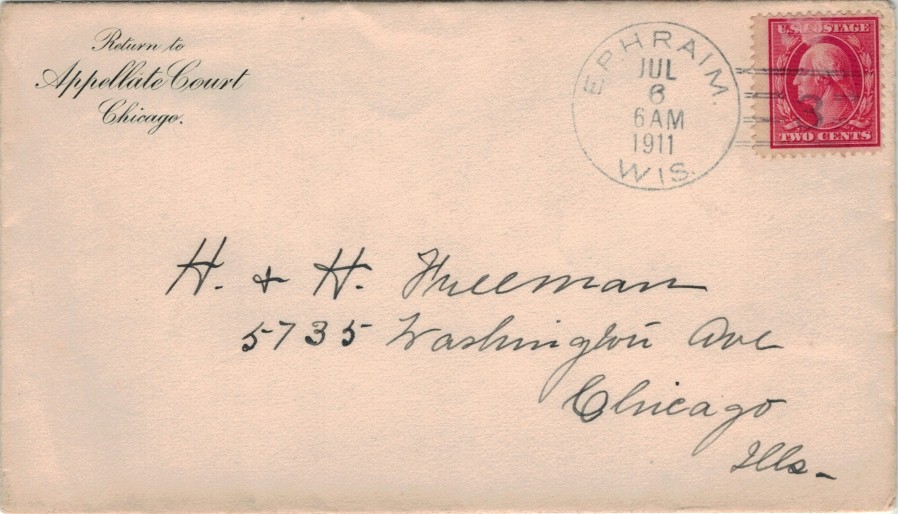 Return to
Appellate Court
Chicago.
EPHRAIM.
JUL
6
6 AM
1911
WIS.
U.S. POSTAGE
3
TWO CENTS
H. & H. Freeman
5735 Washington Ave
Chicago
Ills-